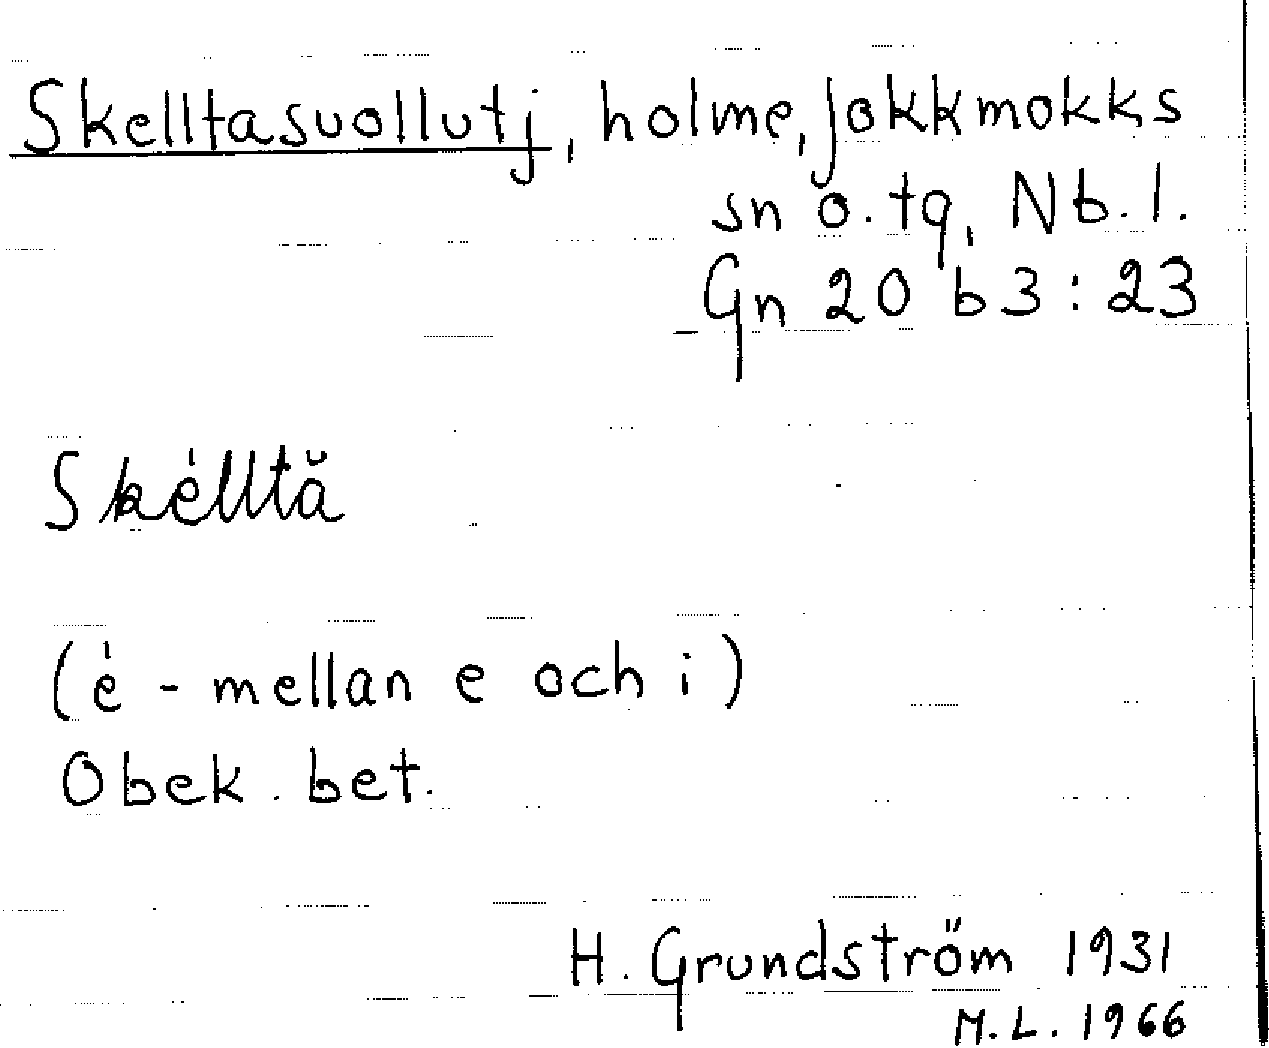 Skelltasuollutj, holme, Jokkmokks
sn o. tg, Nb. l.
Gn 20 b 3 : 23
Skėlltă
(ė - mellan e och i)
Obek. bet.
H. Grundström 1931
M.L. 1966